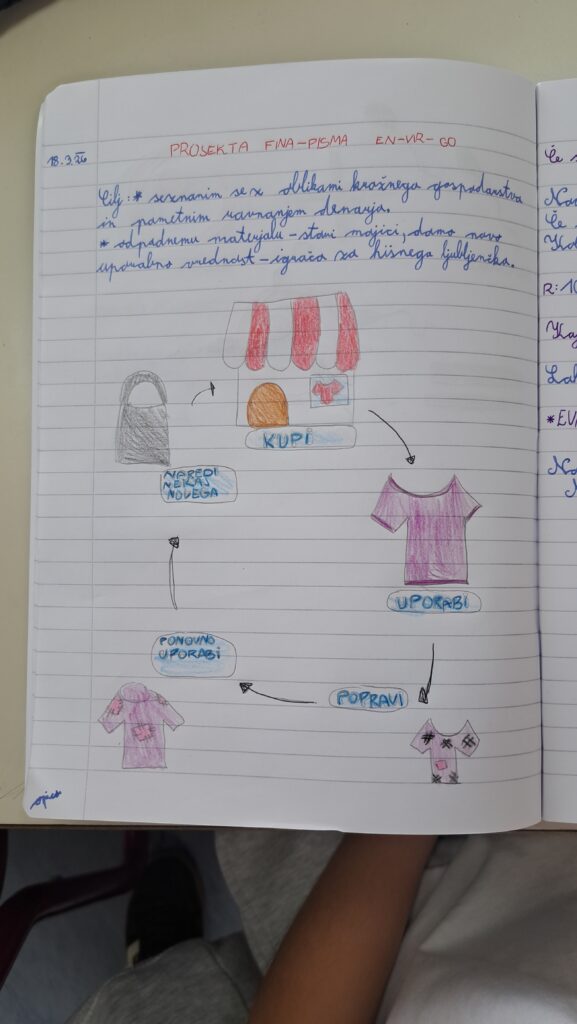 18.3.26
PROSEKTA FINA-PISMA EN-VIR-GO
Cilj: * seznanim se z oblikami krožnega gospodarstva
in pametnim ravnanjem denarja.
* odpadnemu materjalu - stari majici, damo novo
uporabno vrednost - igrača za hišnega ljubljenčka.
KUPI
NAREDI
NEKAJ
NOVEGA
UPORABI
PONOVNO
UPORABI
POPRAVI
Če
Na
Če
R: 10
Kaj
Lah
* EV